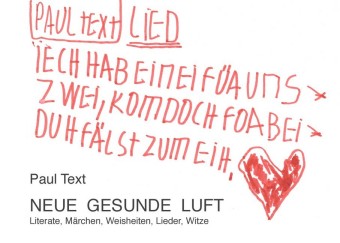 PAUL TEXT LIED
IECH HAB EINEI FÜA UNS
ZWEI, KOM DOCH FOA BEI
DU HFÄLST ZUM EIH,
Paul Text
NEUE GESUNDE LUFT
Literate, Märchen, Weisheiten, Lieder, Witze